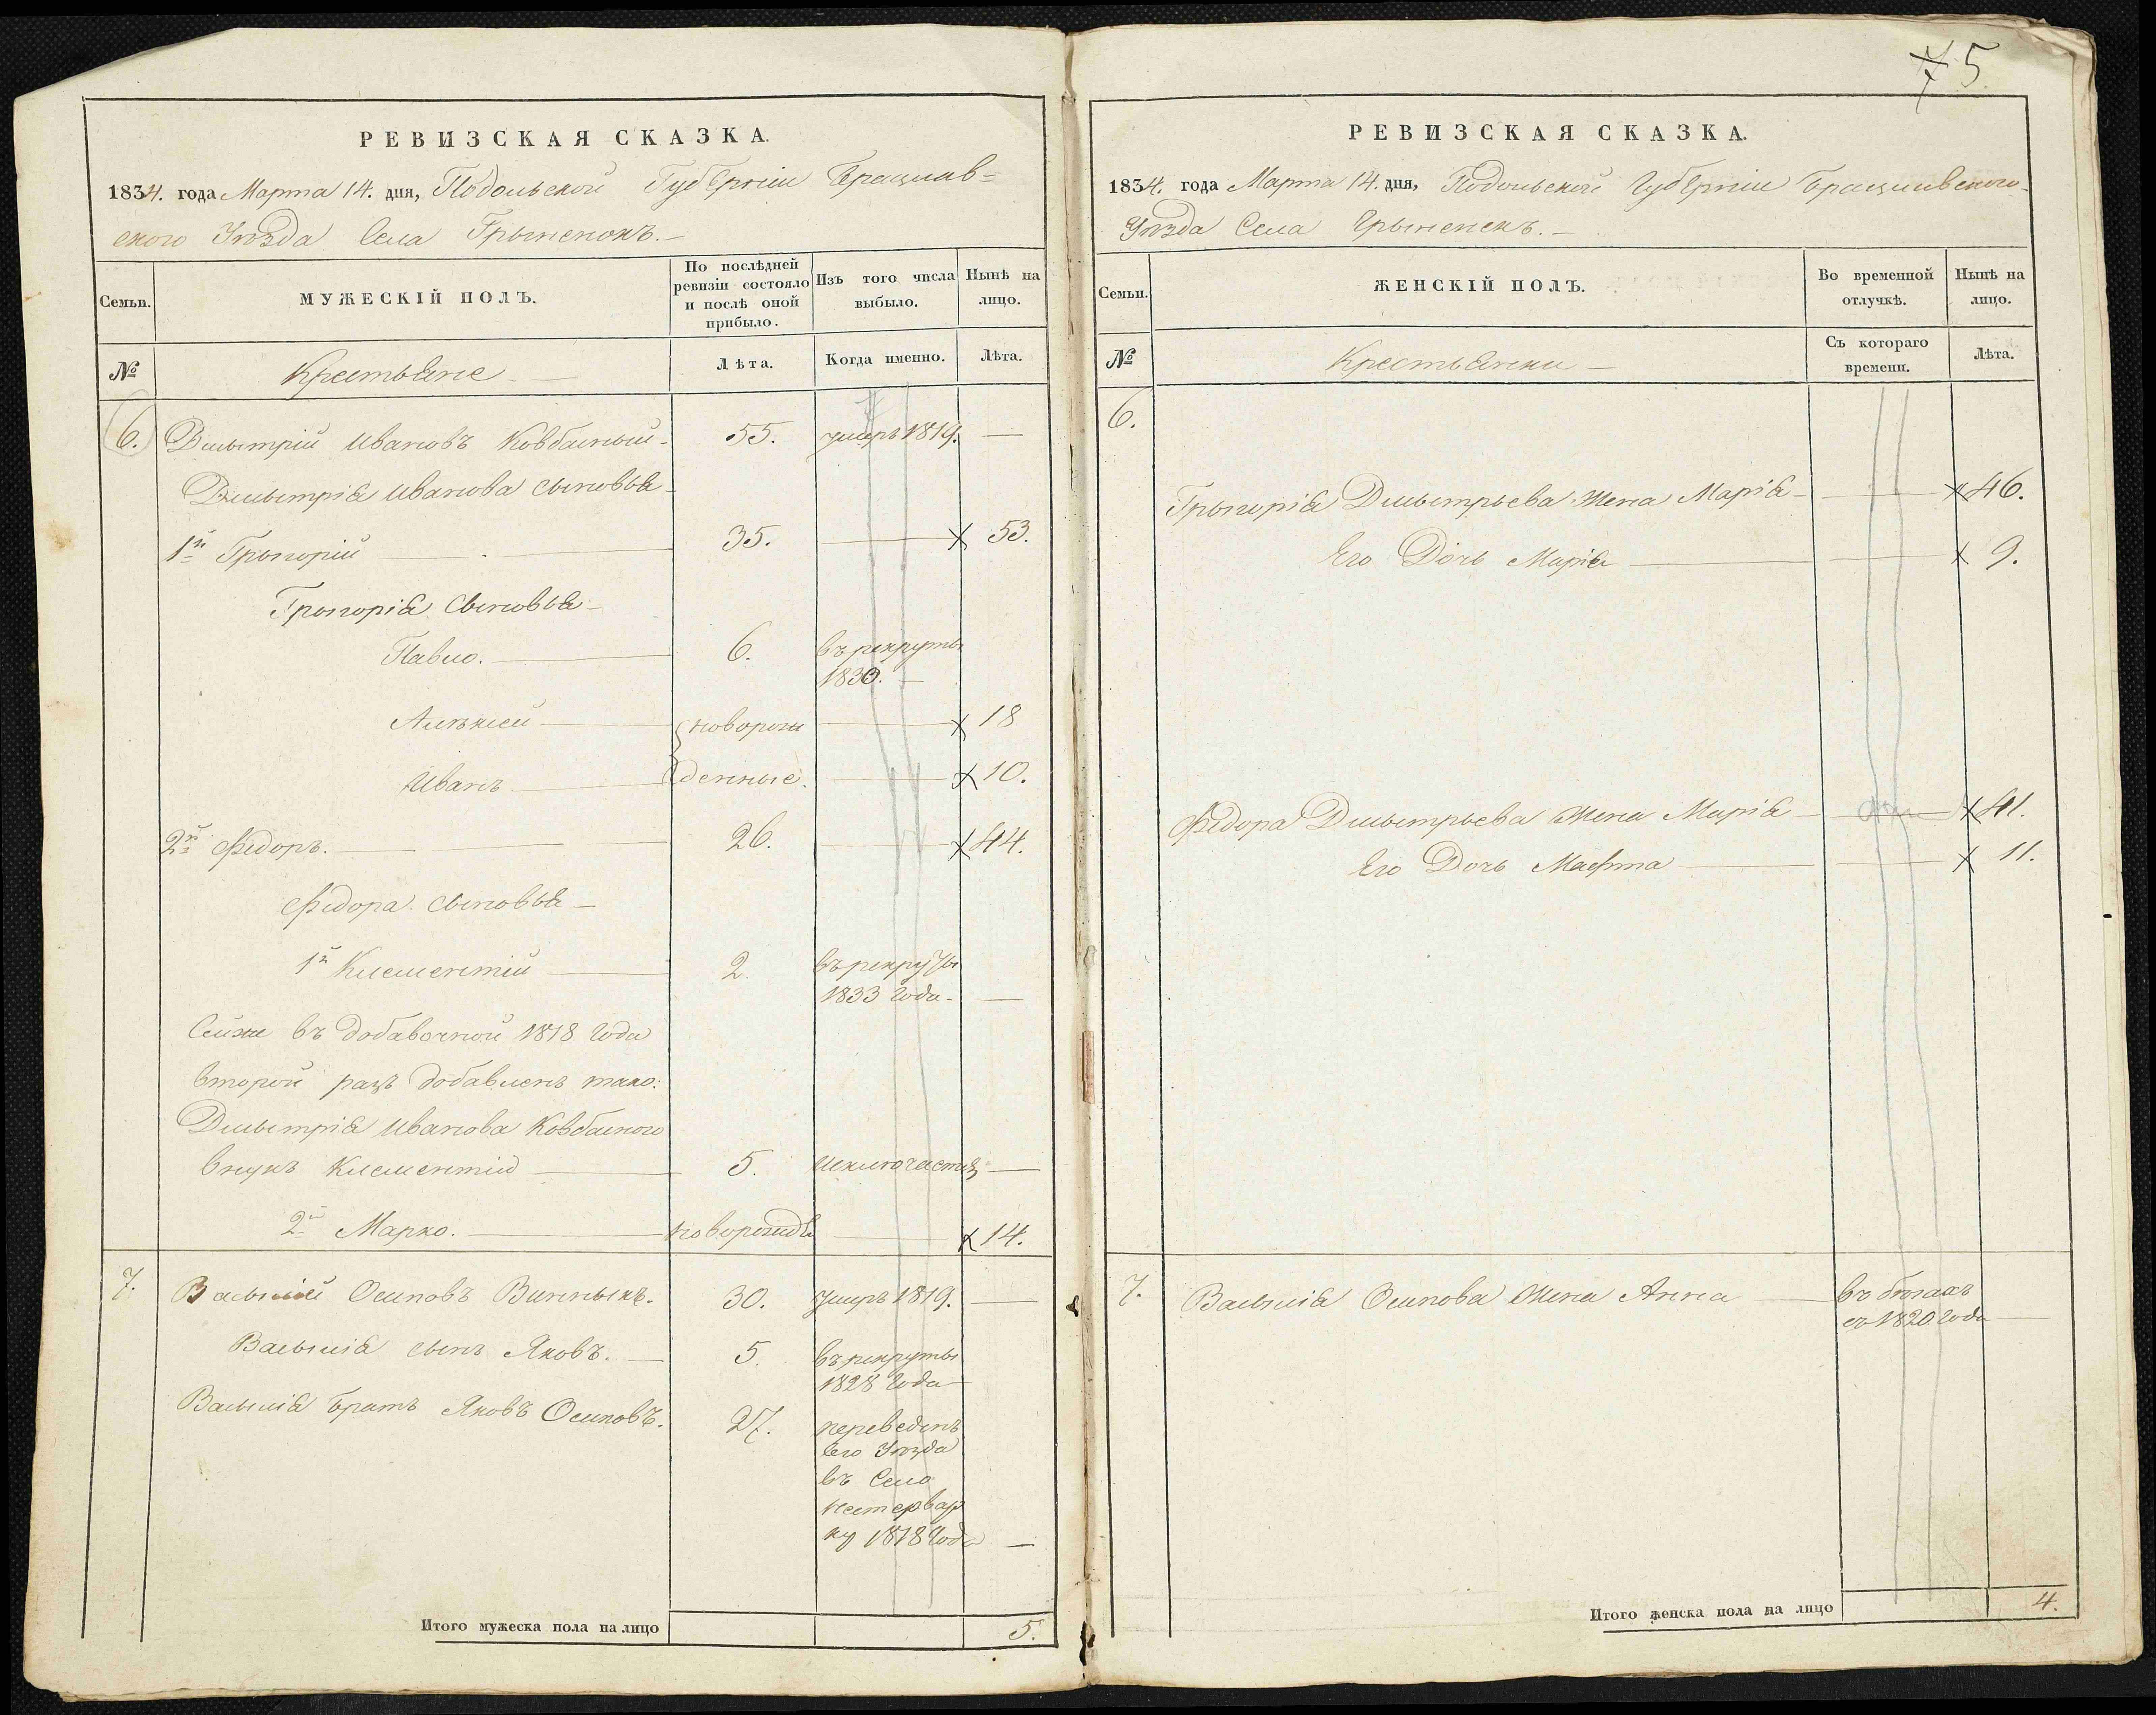 75
РЕВИЗСКАЯ СКАЗКА.
1834. года Марта 14. дня, Подольской Губерніи Брацлав=
ского Уѣзда Села Грыненокъ.—
Семьи.
МУЖЕСКІЙ ПОЛЪ.
По послѣдней ревизіи состояло и послѣ оной прибыло.
Изъ того числа выбыло.
Нынѣ на лицо.
№
Крестьяне —
Лѣта.
Когда именно.
Лѣта.
6. Дмытрій Ивановъ Ковбасный- 55. умеръ 1819. —
Дмытрія Иванова сыновья-
1й Грыгорій — 35. — 53.
Грыгорія Сыновья-
Павло. — 6. въ рекруты
1830. —
Алексей — новорож — 18
Иванъ — денные. — 10.
2й Федоръ. — 26. — 44.
Федора Сыновья —
1й Клементій — 2. въ рекруты
1833 года. —
Сейже въ добавочной 1818 года
второй разъ добавленъ тако:
Дмытрія Иванова Ковбасного
внукъ Клементій — 5. —
2й Марко. — новорожд — 14.
7. Васылій Осиповъ Винныкъ. 30. Умеръ 1819. —
Васылія сынъ Яковъ. — 5. въ рекруты
1828 года —
Васылія братъ Яковъ Осиповъ. 27. переведенъ
его Уѣзда
въ Село
Нестервар
ку 1818 года —
Итого мужеска пола на лицо 5.
РЕВИЗСКАЯ СКАЗКА.
1834. года Марта 14. дня, Подольской Губерніи Брацлавского
Уѣзда Села Грыненокъ. —
Семьи.
ЖЕНСКІЙ ПОЛЪ.
Во временной отлучкѣ.
Нынѣ на лицо.
№
Крестьянки —
Съ котораго времени.
Лѣта.
6.
Грыгорія Дмытрьева Жена Марія — 46.
Его Дочь Марія — 9.
Федора Дмытрьева Жена Марія — 41.
Его Дочь Марта — 11.
7. Васылія Осипова Жена Анна — въ бѣгахъ
съ 1820 года —
Итого женска пола на лицо 4.